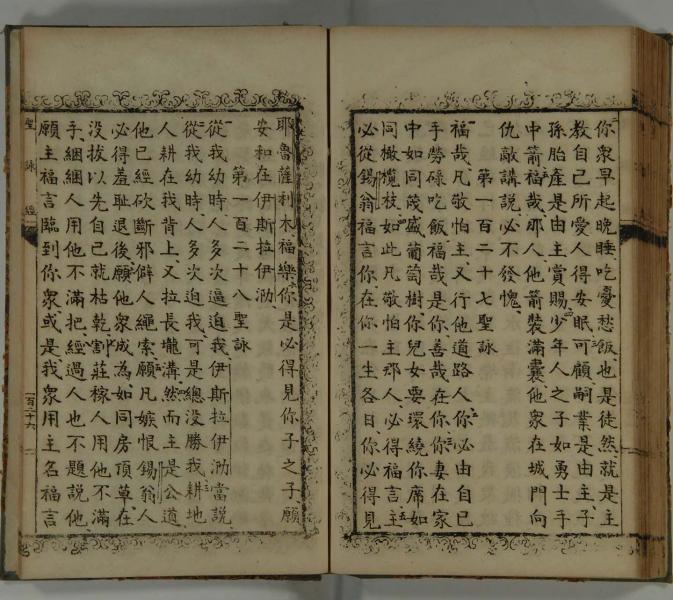 你衆早起晚睡吃憂愁飯也是徒然就是主
教自己所愛人得安眠可顧嗣業是由主子
孫胎產是由主賞賜少年人之子如勇士手
中箭福哉那人他箭裝滿囊他衆在城門向
仇敵講說必不發愧
第一百二十七聖詠
福哉凡敬怕主又行他道路人你必由自已
手勞碌吃飯福哉是你善哉在你你妻在家
中如同茂盛葡萄樹你兒女要環繞你席如
同橄欖枝如此凡敬怕主那人必得福言主
必從錫翁福言你在你一生各日你必得見
耶魯薩利木福樂你是必得見你子之子願
安和在伊斯拉伊泐
第一百二十八聖詠
從我幼時人多次逼迫我伊斯拉伊泐當說
從我幼時人多次迫我可是總没勝我耕地
人耕在我背上又拉長壠溝然而主是公道
他已經砍斷邪僻人繩索願凡嫉恨錫翁人
必得羞耻退後願他衆成為如同房頂草在
没拔以先自己就枯乾割莊稼人用他不滿
手綑綑人用他不滿把經過人也不題說他
願主福言臨到你衆或是我衆用主名福言
聖詠經
一百二十六